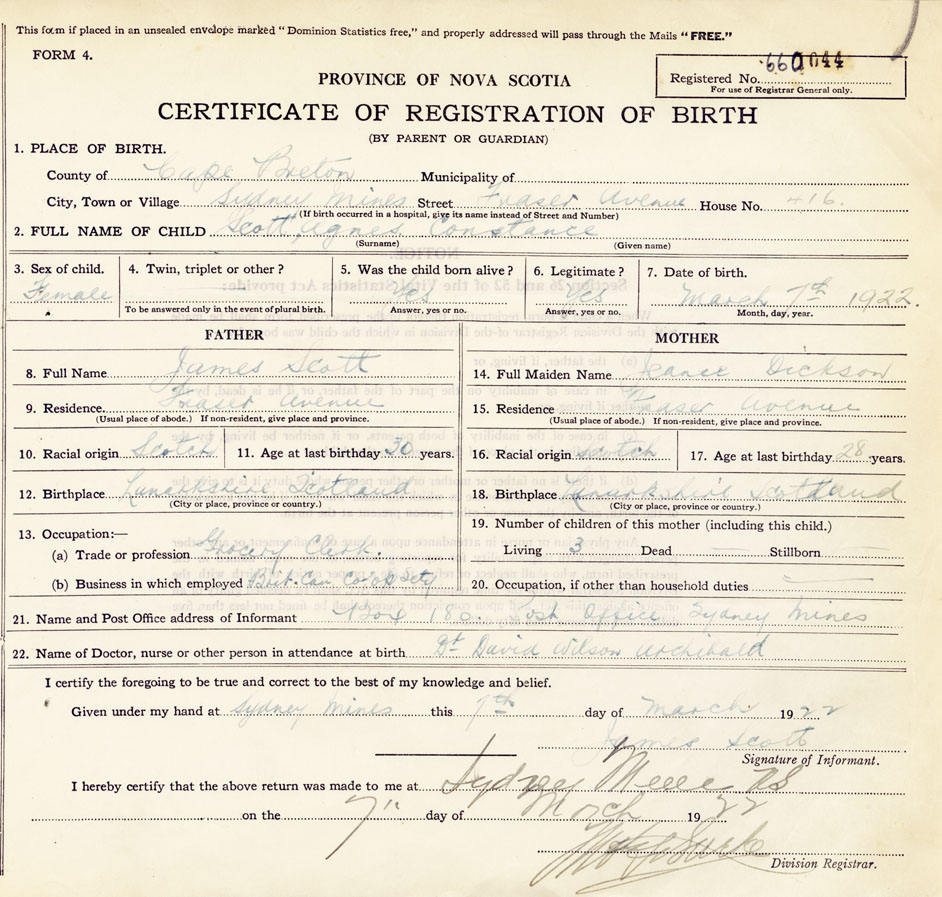 This form if placed in an unsealed envelope marked "Dominion Statistics free," and properly addressed will pass through the Mails "FREE."
FORM 4.
660044
Registered No.
For use of Registrar General only.
PROVINCE OF NOVA SCOTIA
CERTIFICATE OF REGISTRATION OF BIRTH
(BY PARENT OR GUARDIAN)
1. PLACE OF BIRTH.
County of Cape Breton Municipality of
City, Town or Village Sydney Mines Street Fraser Avenue House No. 416.
(If birth occurred in a hospital, give its name instead of Street and Number)
2. FULL NAME OF CHILD Scott, Agnes Constance
(Surname) (Given name)
3. Sex of child. 4. Twin, triplet or other? 5. Was the child born alive? 6. Legitimate? 7. Date of birth.
Female Yes Yes March 7th 1922.
To be answered only in the event of plural birth. Answer, yes or no. Answer, yes or no. Month, day, year.
FATHER
8. Full Name James Scott
9. Residence. Fraser Avenue
(Usual place of abode.) If non-resident, give place and province.
10. Racial origin Scotch 11. Age at last birthday 30 years.
12. Birthplace Lanarkshire Scotland
(City or place, province or country.)
13. Occupation:—
(a) Trade or profession Grocery Clerk.
(b) Business in which employed Brit. Can. Co-op Scty
MOTHER
14. Full Maiden Name Jeanee Dickson
15. Residence Fraser Avenue
(Usual place of abode.) If non-resident, give place and province.
16. Racial origin Scotch 17. Age at last birthday 28 years.
18. Birthplace Lanarkshire Scotland
(City or place, province or country.)
19. Number of children of this mother (including this child.)
Living 3 Dead — Stillborn —
20. Occupation, if other than household duties —
21. Name and Post Office address of Informant Box 180. Post Office Sydney Mines
22. Name of Doctor, nurse or other person in attendance at birth Dr David Wilson Archibald
I certify the foregoing to be true and correct to the best of my knowledge and belief.
Given under my hand at Sydney Mines this 7th day of March 1922
James Scott
Signature of Informant.
I hereby certify that the above return was made to me at Sydney Mines NS
on the 7" day of March 1922
Division Registrar.